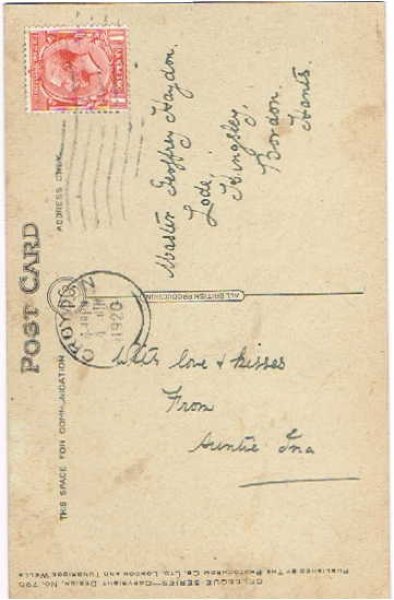 POST CARD
THIS SPACE FOR COMMUNICATION
ADDRESS ONLY
CROYDON
1920
With love & kisses
From
Auntie Ina
Master Geoffrey Haydon.
Lode,
Kingsley,
Bordon.
Hants.
ALL BRITISH PRODUCTION
CELESQUE SERIES—COPYRIGHT DESIGN. NO. 795
PUBLISHED BY THE PHOTOCHROM CO. LTD. LONDON AND TUNBRIDGE WELLS